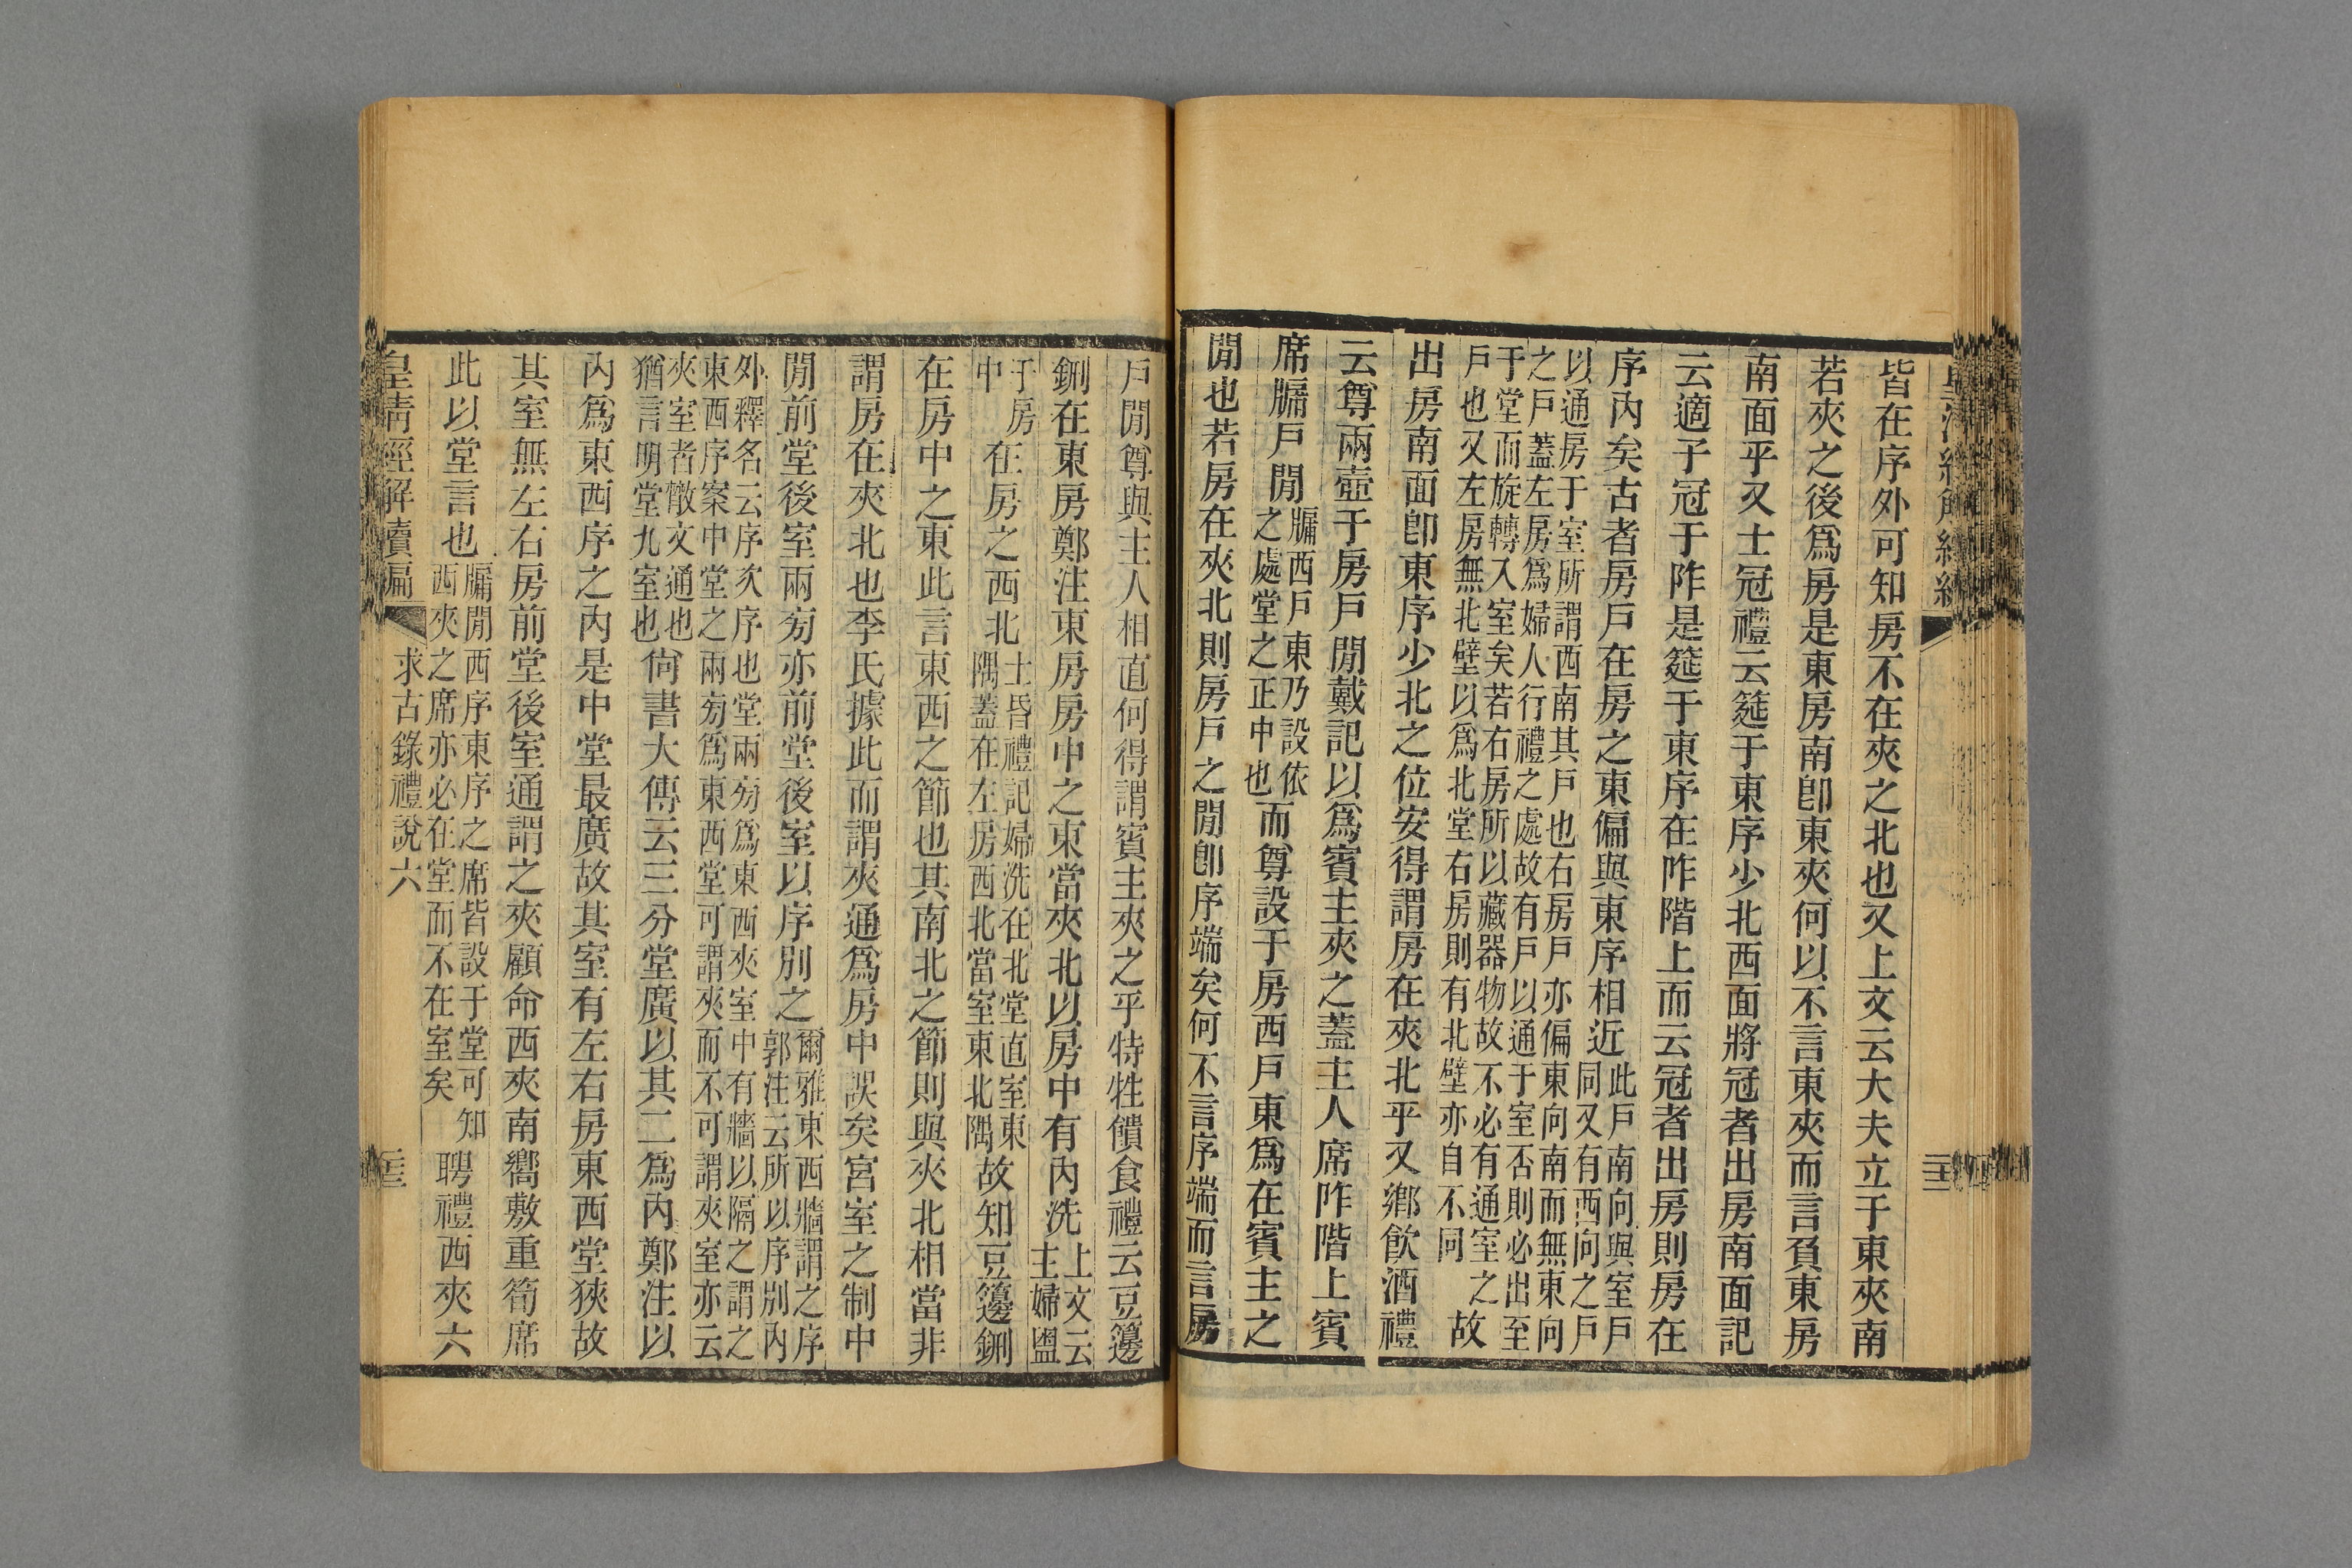 皆在序外可知房不在夾之北也又上文云大夫立于東夾南
若夾之後爲房是東房南卽東夾何以不言東夾而言負東房
南面乎又士冠禮云筵于東序少北西面將冠者出房南面記
云適子冠于阼是筵于東序在阼階上而云冠者出房則房在
序內矣古者房戶在房之東偏與東序相近此戶南向與室戶
同又有西向之戶
以通房于室所謂西南其戶也右房戶亦偏東向南而無東向
之戶蓋左房爲婦人行禮之處故有戶以通于室否則必出至
于堂而旋轉入室矣若右房所以藏器物故不必有通室之
戶也又左房無北壁以爲北堂右房則有北壁亦自不同
故
出房南面卽東序少北之位安得謂房在夾北乎又鄉飮酒禮
云尊兩壺于房戶閒戴記以爲賓主夾之蓋主人席阼階上賓
席牖戶閒
牖西戶東乃設依
之處堂之正中也
而尊設于房西戶東爲在賓主之
閒也若房在夾北則房戶之閒卽序端矣何不言序端而言房
戶閒尊與主人相直何得謂賓主夾之乎特牲饋食禮云豆籩
鉶在東房鄭注東房房中之東當夾北以房中有內洗
上文云
主婦盥
于房
中
在房之西北
士昏禮記婦洗在北堂直室東
隅蓋在左房西北當室東北隅
故知豆籩鉶
在房中之東此言東西之節也其南北之節則與夾北相當非
謂房在夾北也李氏據此而謂夾通爲房中誤矣宮室之制中
閒前堂後室兩旁亦前堂後室以序別之
爾雅東西牆謂之序
郭注云所以序別內
外釋名云序次序也堂兩旁爲東西夾室中有牆以隔之謂之
東西序案中堂之兩旁爲東西堂可謂夾而不可謂夾室亦云
夾室者散文通也
猶言明堂九室也
尙書大傳云三分堂廣以其二爲內鄭注以
內爲東西序之內是中堂最廣故其室有左右房東西堂狹故
其室無左右房前堂後室通謂之夾顧命西夾南嚮敷重筍席
此以堂言也
牖閒西序東序之席皆設于堂可知
西夾之席亦必在堂而不在室矣
聘禮西夾六
皇淸經解續編
求古錄禮說六